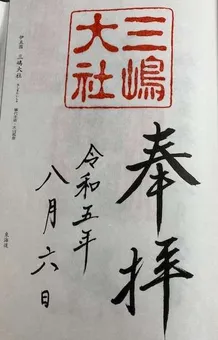 三嶋
大社
奉拝
令和五年
八月六日
伊豆国 三嶋大社
東海道